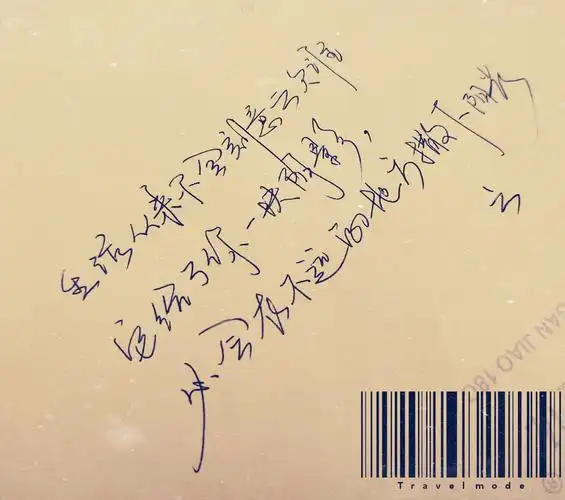 生活从来不会刻意亏欠谁
它给了你一块阴影,
必会在不远的地方撒下阳光
云
GAN JIAO 180
Travelmode